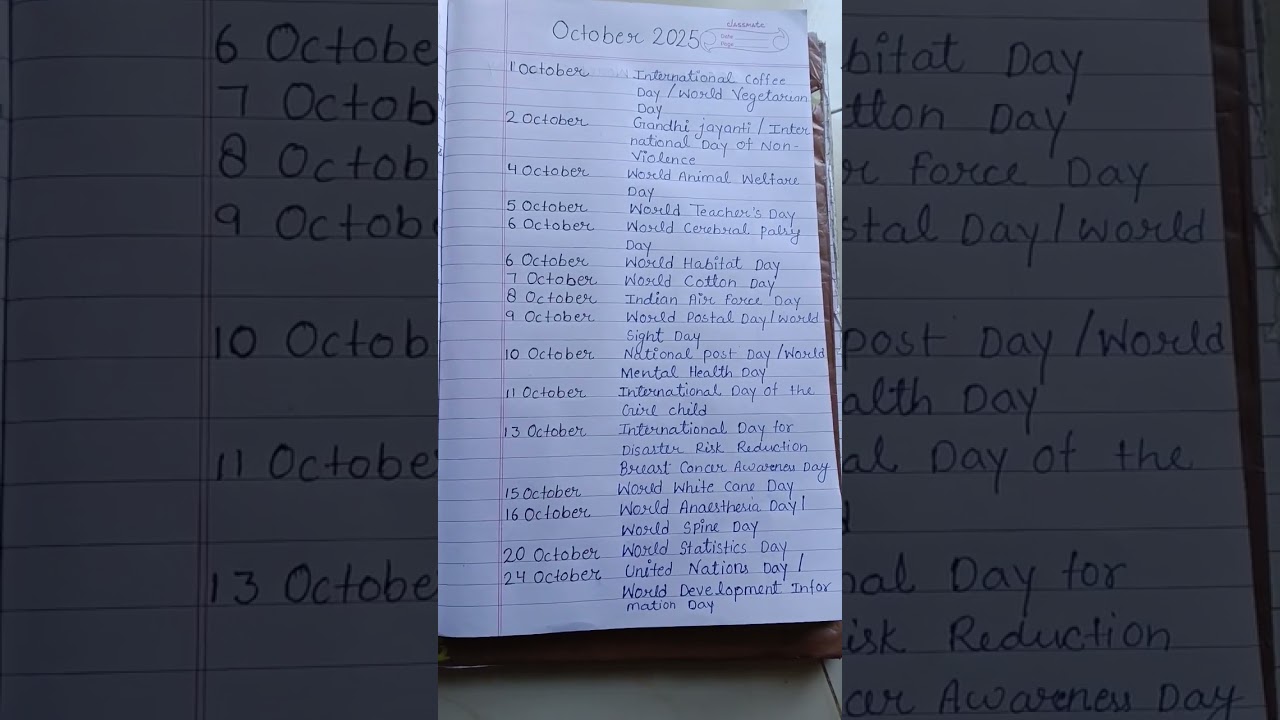 October 2025
classmate
Date
Page
1 October International Coffee
Day / World Vegetarian
Day
2 October Gandhi jayanti / Inter
national Day of Non-
Violence
4 October World Animal Welfare
Day
5 October World Teacher's Day
6 October World Cerebral palsy
Day
6 October World Habitat Day
7 October World Cotton Day
8 October Indian Air Force Day
9 October World Postal Day / World
Sight Day
10 October National post Day / World
Mental Health Day
11 October International Day of the
Girl child
13 October International Day for
Disaster Risk Reduction
Breast Cancer Awareness Day
15 October World White Cane Day
16 October World Anaesthesia Day /
World Spine Day
20 October World Statistics Day
24 October United Nations Day /
World Development Infor
mation Day
6 Octobe
7 Octob
8 Octob
9 Octobe
10 Octob
11 Octobe
13 Octobe
bitat Day
tton Day
r Force Day
stal Day / World
post Day / World
alth Day
al Day of the
nal Day for
isk Reduction
cer Awareness Day